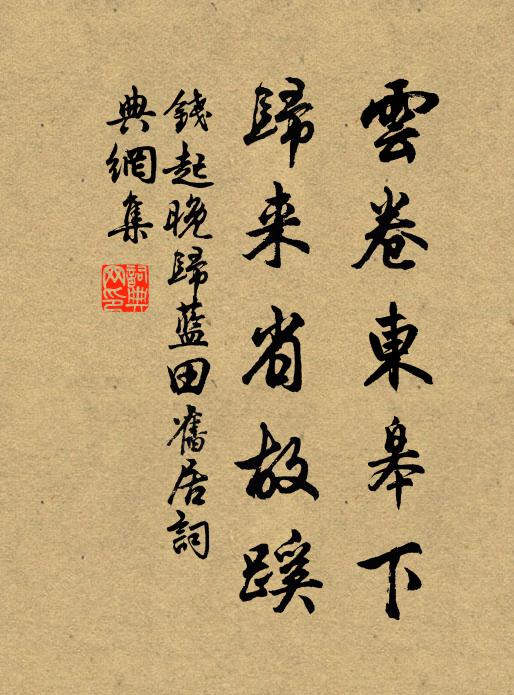 雲卷東皋下
歸来省故蹊
錢起晚歸藍田舊居詞
典網集
詞典
网印